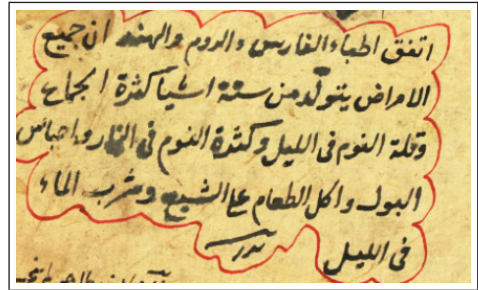 اتفق اطباء الفارس والروم والهند ان جميع
الامراض يتولد من ستة اشيا كثرة الجماع
وقلة النوم فى الليل وكثرة النوم فى النهار واحباس
البول واكل الطعام على الشبع وشرب الماء
فى الليل